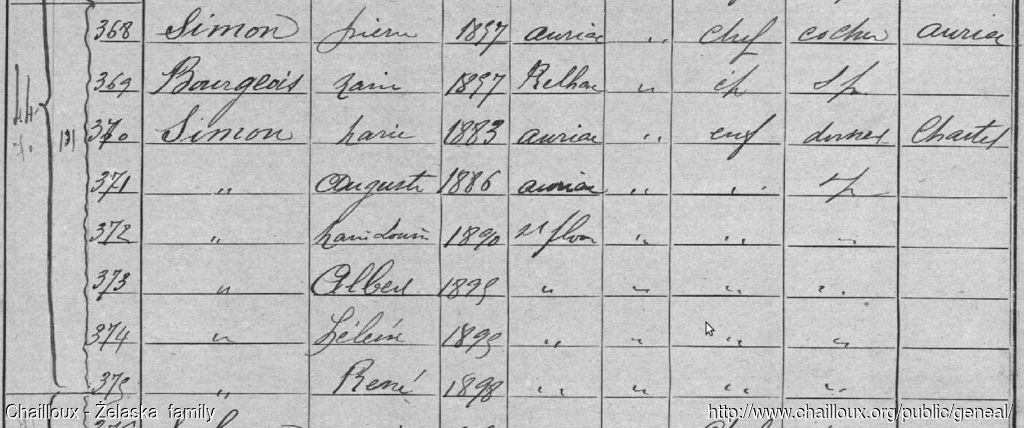 368 Simon pierre 1857 auriac " chef cocher auriac
369 Bourgeois marie 1857 Relhac " ép sp
370 Simon marie 1883 auriac " enf domes Chastel
371 " Auguste 1886 auriac " " sp
372 " marie Louise 1890 st flour " " "
373 " Albert 1895 " " " "
374 " Hélène 1895 " " " "
375 " René 1898 " " " "
131
Chailloux - Želaska family http://www.chailloux.org/public/geneal/